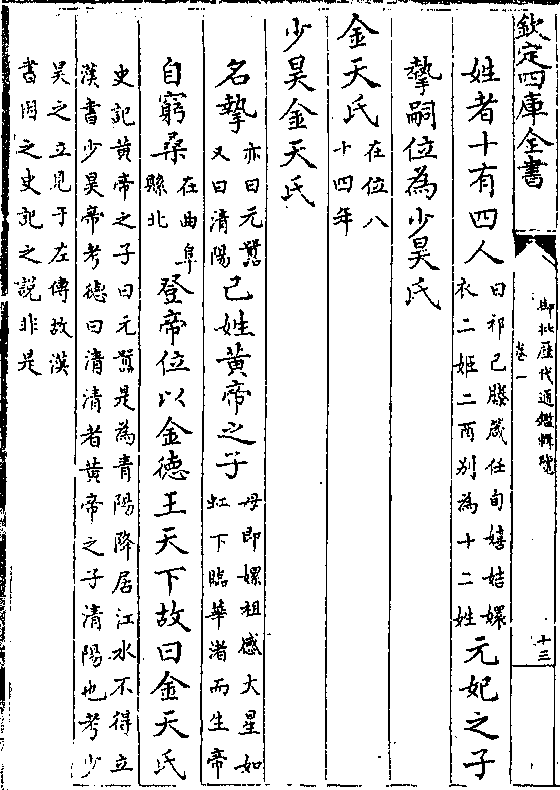 欽定四庫全書
御批歷代通鑑輯覽
卷一
十三
姓者十有四人曰祁己滕葴任荀嬉姞嬛衣二姬二酉别為十二姓元妃之子
摯嗣位為少昊氏
金天氏在位八十四年
少昊金天氏
名摯亦曰元囂又曰清陽己姓黄帝之子母即嫘祖感大星如虹下臨華渚而生帝
自窮桑在曲阜縣北登帝位以金德王天下故曰金天氏
史記黄帝之子曰元囂是為青陽降居江水不得立
漢書少昊帝考德曰清清者黄帝之子清陽也考少
昊之立見于左傳故漢
書因之史記之説非是